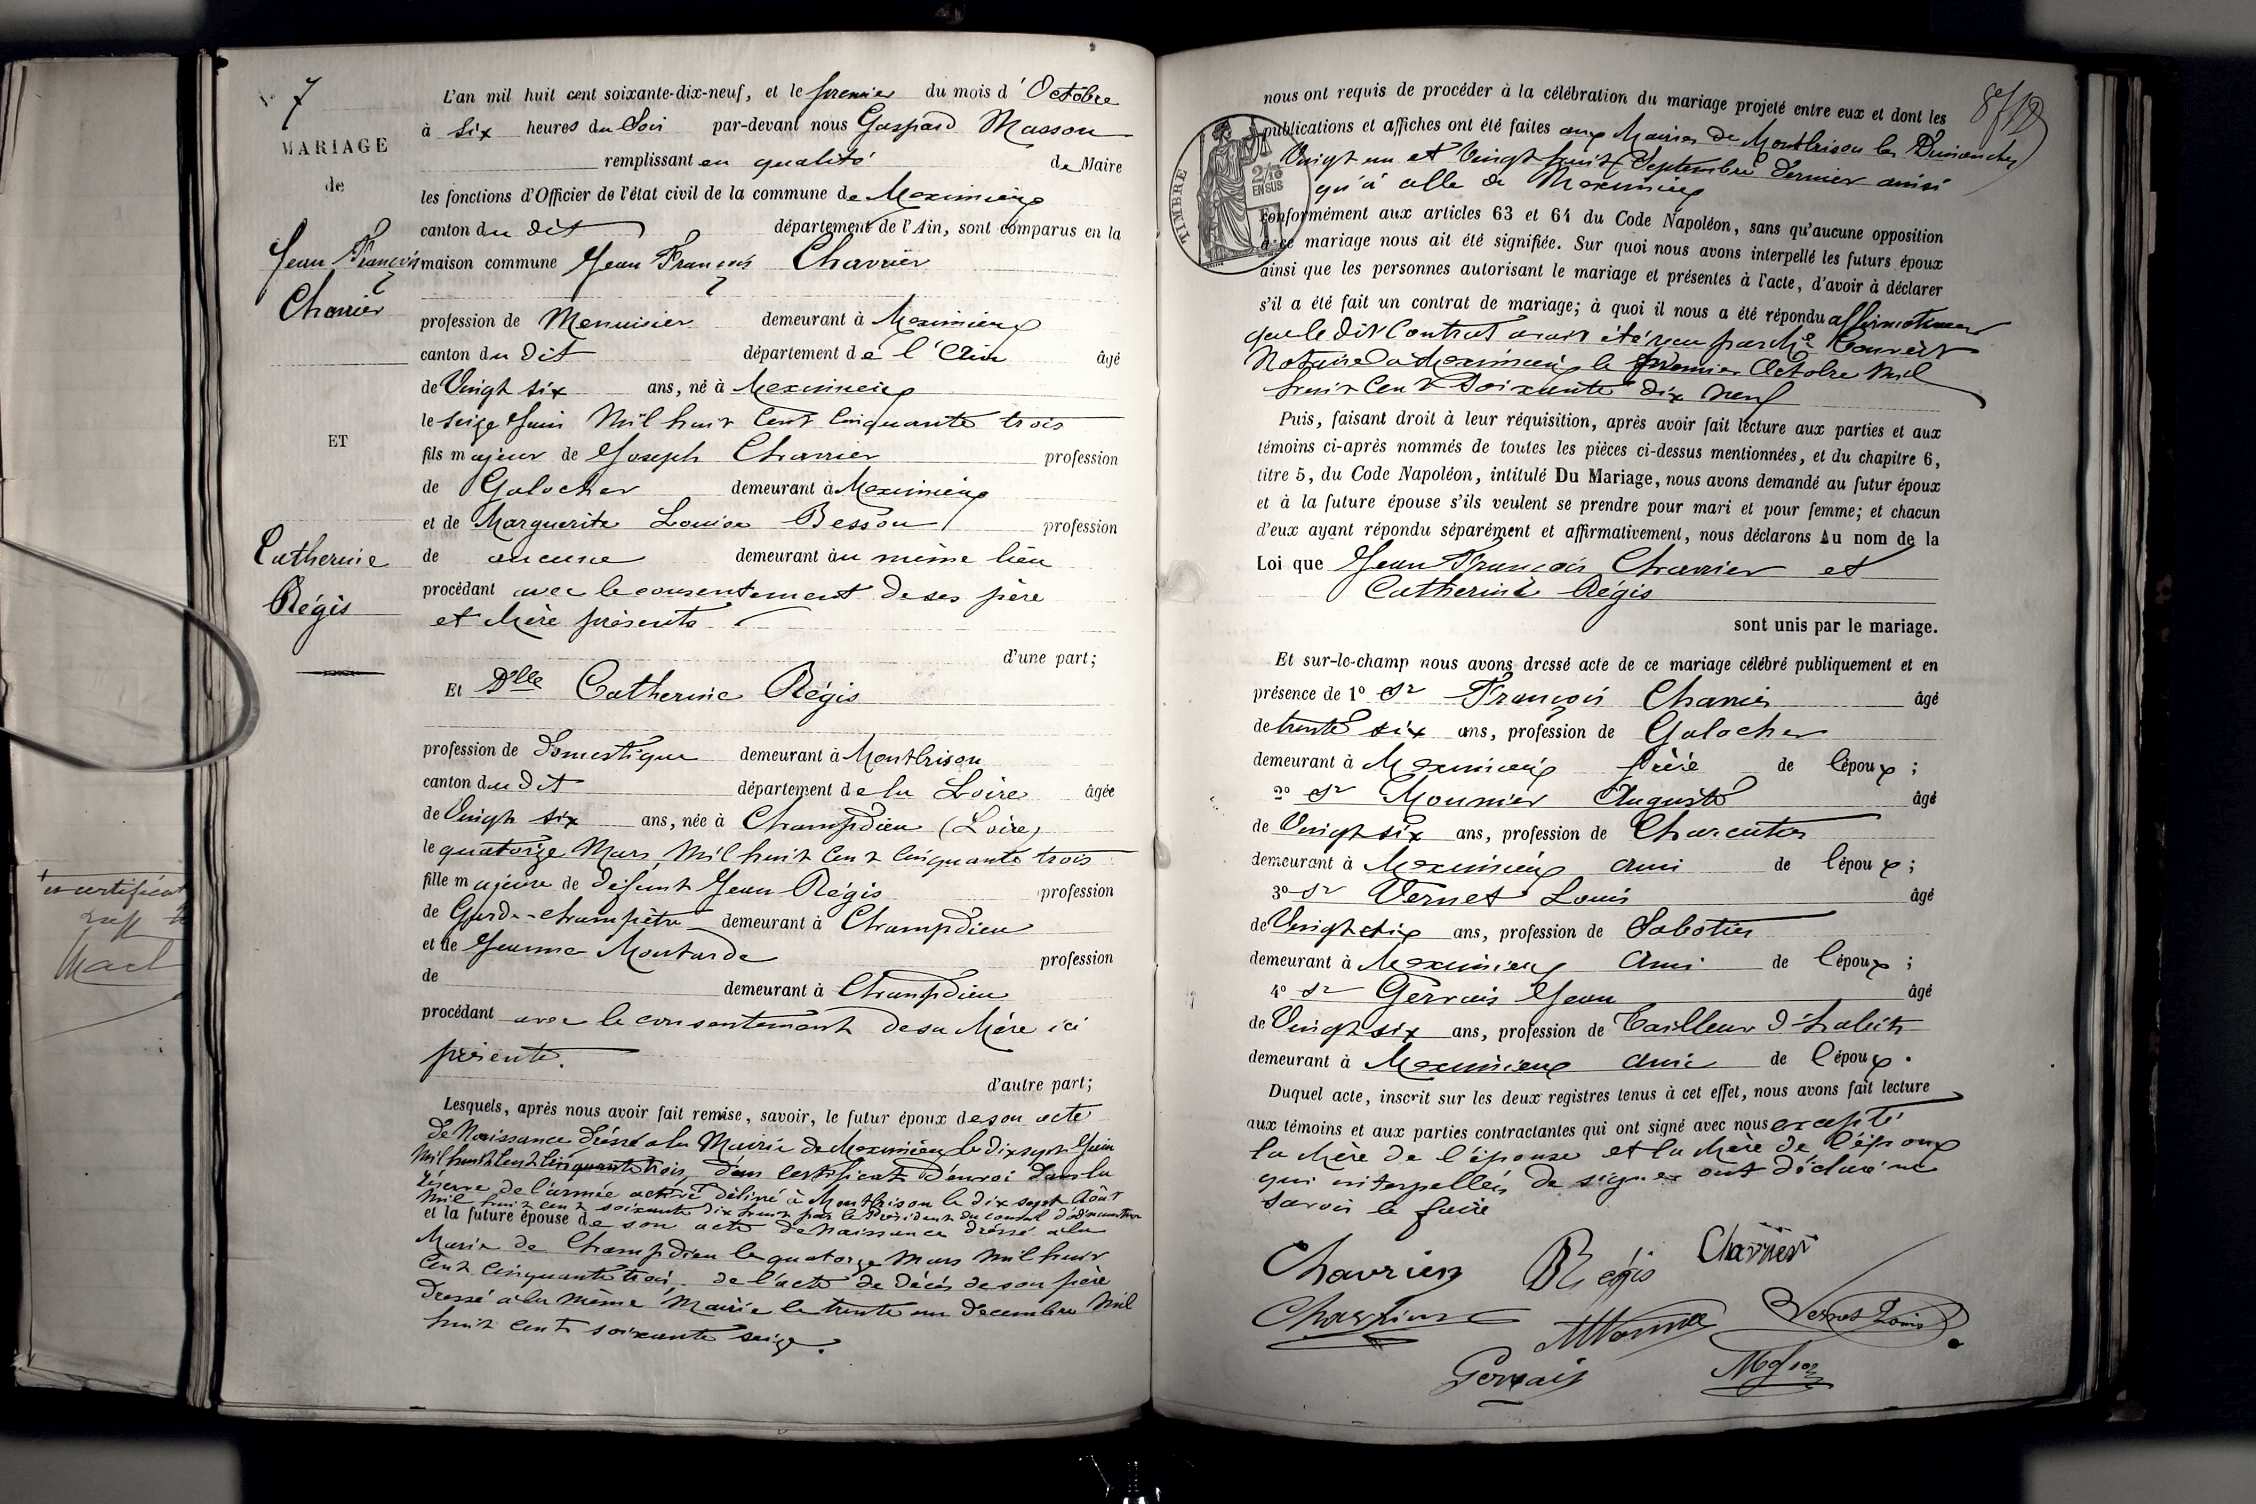 N° 7
MARIAGE
de
Jean François
Charrier
ET
Catherine
Régis
L'an mil huit cent soixante-dix-neuf, et le premier du mois d'Octobre
à Six heures du Soir par-devant nous Gaspard Masson
remplissant en qualité de Maire
les fonctions d'Officier de l'état civil de la commune de Meximieux
canton du dit département de l'Ain, sont comparus en la
maison commune Jean François Charrier
profession de Menuisier demeurant à Meximieux
canton du dit département de l'Ain âgé
de Vingt six ans, né à Meximieux
le seize Juin Mil huit Cent Cinquante trois
fils majeur de Joseph Charrier profession
de Galocher demeurant à Meximieux
et de Marguerite Louise Besson profession
de aucune demeurant au même lieu
procédant avec le consentement de ses père
et Mère présents
d'une part;
Et Dlle Catherine Régis
profession de Domestique demeurant à Montbrison
canton du dit département de la Loire âgée
de Vingt six ans, née à Champdieu (Loire)
le quatorze Mars Mil huit Cent Cinquante trois
fille majeure de défunt Jean Régis profession
de Garde-champêtre demeurant à Champdieu
et de Jeanne Moutarde profession
de demeurant à Champdieu
procédant avec le consentement de sa Mère ici
présente.
d'autre part;
Lesquels, après nous avoir fait remise, savoir, le futur époux de son acte
de Naissance dréssé a la Mairie de Meximieux le dix sept Juin
Mil huit Cent Cinquante trois, d'un certificat d'envoi dans la
réserve de l'armée active délivré à Montbrison le dix sept Août
Mil huit cent soixante dix huit par le Président du conseil d'administration
et la future épouse de son acte de Naissance dréssé a la
Mairie de Champdieu le quatorze Mars Mil huit
Cent Cinquante trois, de l'acte de décès de son père
dressé a la même Mairie le trente un Decembre Mil
huit cent soixante seize.
et certificat
8/12
nous ont requis de procéder à la célébration du mariage projeté entre eux et dont les
publications et affiches ont été faites aux Mairies de Montbrison les Dimanches
Vingt un et Vingt huit Septembre dernier ainsi
qu'à celle de Meximieux
TIMBRE
2/10
EN SUS
conformément aux articles 63 et 64 du Code Napoléon, sans qu'aucune opposition
à ce mariage nous ait été signifiée. Sur quoi nous avons interpellé les futurs époux
ainsi que les personnes autorisant le mariage et présentes à l'acte, d'avoir à déclarer
s'il a été fait un contrat de mariage; à quoi il nous a été répondu affirmativement
que le dit Contrat avait été reçu par Me Convert
Notaire à Meximieux le premier Octobre Mil
huit Cent Soixante dix neuf
Puis, faisant droit à leur réquisition, après avoir fait lecture aux parties et aux
témoins ci-après nommés de toutes les pièces ci-dessus mentionnées, et du chapitre 6,
titre 5, du Code Napoléon, intitulé Du Mariage, nous avons demandé au futur époux
et à la future épouse s'ils veulent se prendre pour mari et pour femme; et chacun
d'eux ayant répondu séparément et affirmativement, nous déclarons Au nom de la
Loi que Jean François Charrier et
Catherine Régis
sont unis par le mariage.
Et sur-le-champ nous avons dressé acte de ce mariage célébré publiquement et en
présence de 1° Sr François Charrier âgé
de trente six ans, profession de Galocher
demeurant à Meximieux frère de l'époux;
2° Sr Mounier Auguste âgé
de Vingt six ans, profession de Charcutier
demeurant à Meximieux ami de l'époux;
3° Sr Vernet Louis âgé
de Vingt six ans, profession de Sabotier
demeurant à Meximieux Ami de l'époux;
4° Sr Gervais Jean âgé
de Vingt six ans, profession de Tailleur d'habits
demeurant à Meximieux ami de l'époux.
Duquel acte, inscrit sur les deux registres tenus à cet effet, nous avons fait lecture
aux témoins et aux parties contractantes qui ont signé avec nous excepté
la Mère de l'épouse et la Mère de l'époux
qui interpellées de signer ont déclaré ne
savoir le faire
Charrier Régis Charrier
Charrier Vernet Louis
Gervais Masson